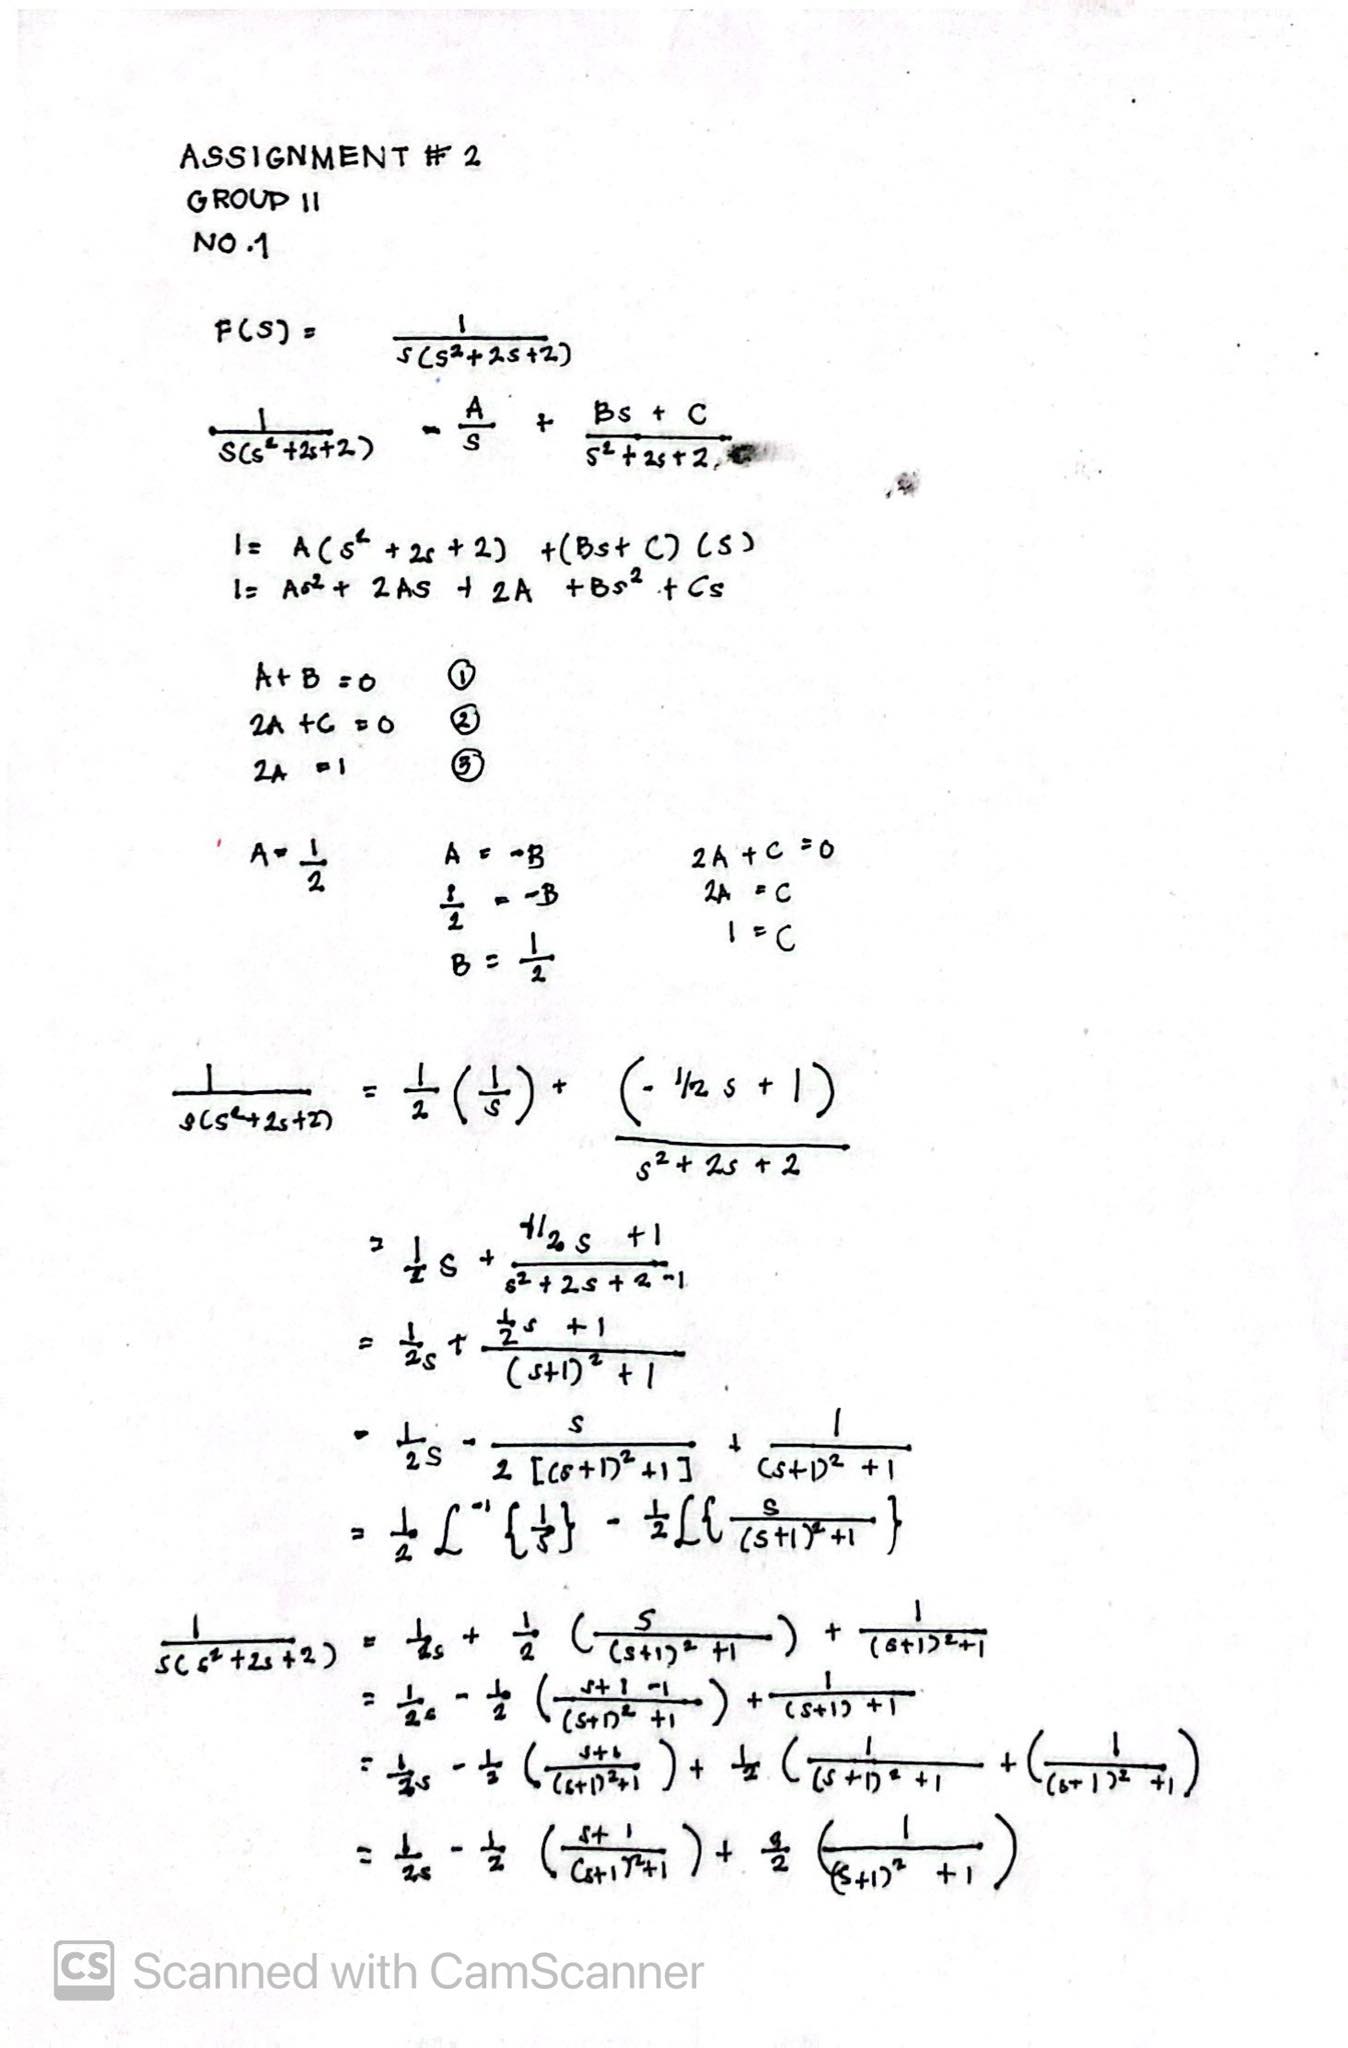 ASSIGNMENT # 2
GROUP 11
NO.1
F(S) = 1 / s(s²+2s+2)
1 / s(s²+2s+2) = A/s + (Bs + C) / (s²+2s+2)
1 = A(s²+2s+2) +(Bs+C)(s)
1 = As² + 2As + 2A + Bs² + Cs
A+B=0 ①
2A+C=0 ②
2A=1 ③
A=1/2 A=-B 2A+C=0
1/2=-B 2A=C
B=1/2 1=C
1 / s(s²+2s+2) = 1/2 (1/s) + (-1/2 s + 1) / (s²+2s+2)
= 1/2 s + (1/2 s +1) / (s²+2s+2-1)
= 1/2s + (1/2 s +1) / ((s+1)²+1)
= 1/2s - s / 2[(s+1)²+1] + 1 / ((s+1)²+1)
= 1/2 L⁻¹{1/s} - 1/2 L{s / ((s+1)²+1)}
1 / s(s²+2s+2) = 1/2s + 1/2 (s / ((s+1)²+1)) + 1 / ((s+1)²+1)
= 1/2s - 1/2 ((s+1-1) / ((s+1)²+1)) + 1 / ((s+1)+1)
= 1/2s - 1/2 ((s+1) / ((s+1)²+1)) + 1/2 (1 / ((s+1)²+1) + (1 / ((s+1)²+1))
= 1/2s - 1/2 ((s+1) / ((s+1)²+1)) + /2 (1 / ((s+1)²+1))
CS Scanned with CamScanner